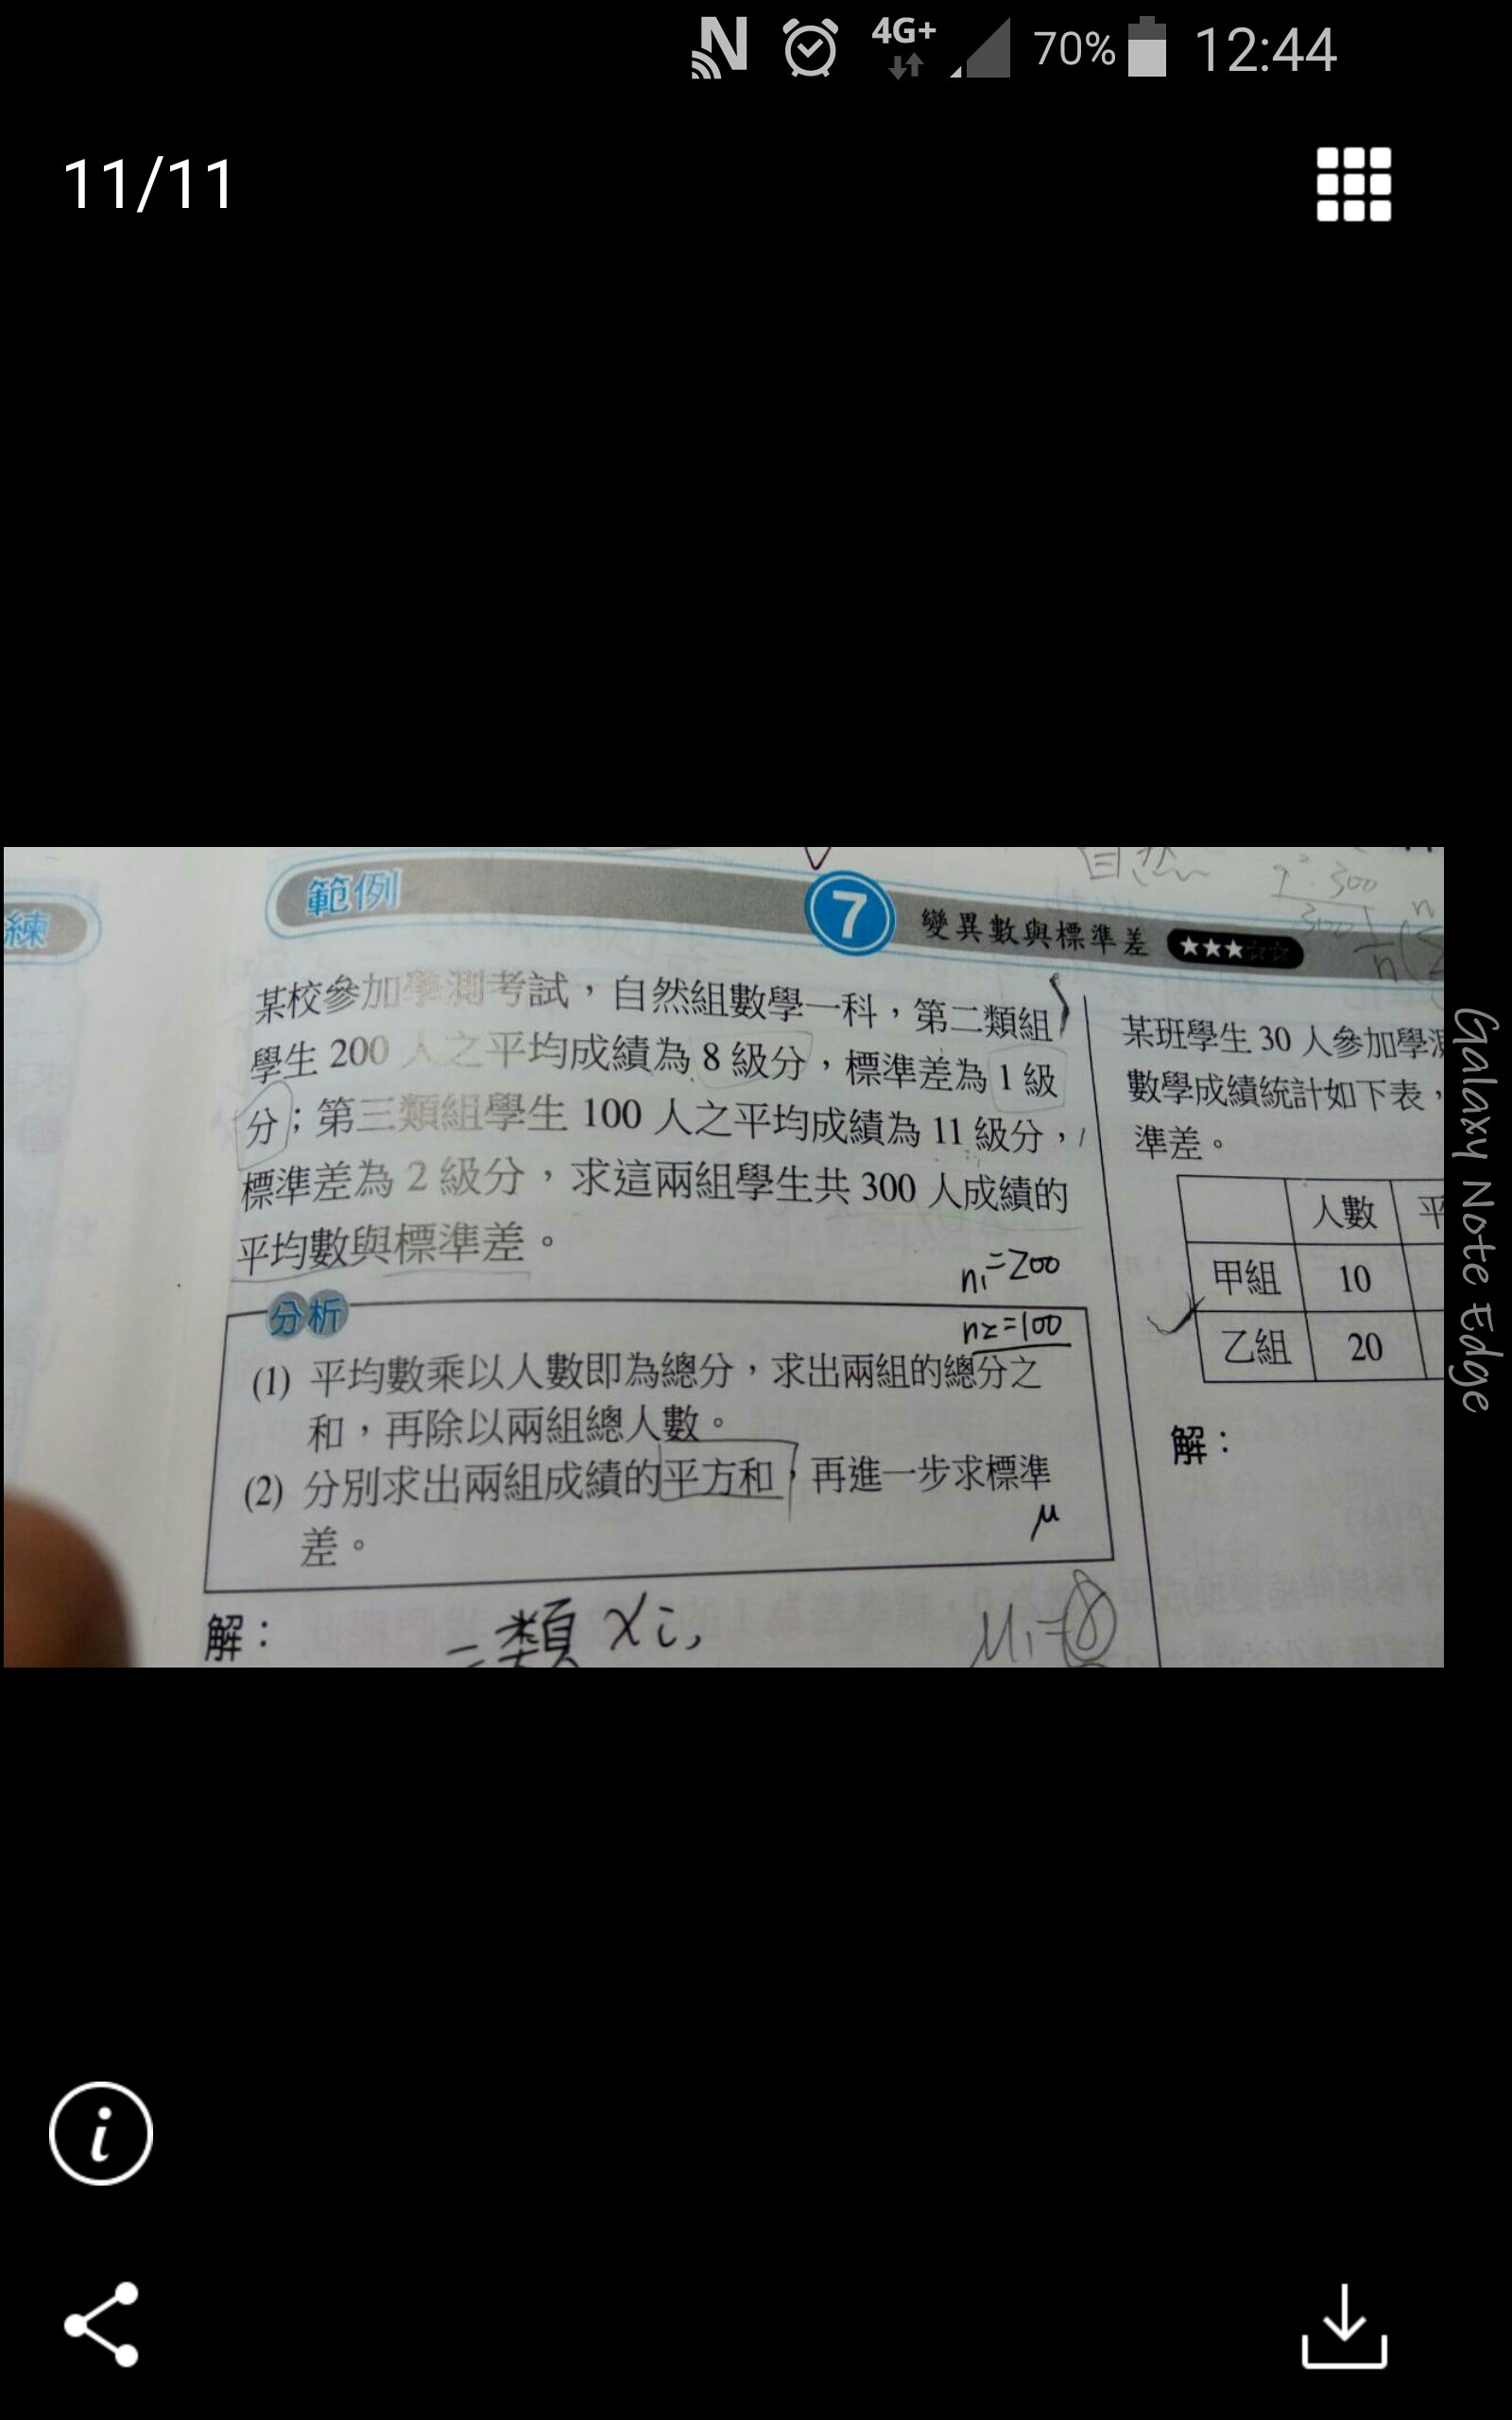 4G+ 70% 12:44
11/11
範例 7 變異數與標準差
練
自然
某校參加學測考試，自然組數學一科，第二類組
學生 200 人之平均成績為 8 級分，標準差為 1 級
分；第三類組學生 100 人之平均成績為 11 級分，
標準差為 2 級分，求這兩組學生共 300 人成績的
平均數與標準差。
n₁=200
n₂=100
分析
(1) 平均數乘以人數即為總分，求出兩組的總分之
和，再除以兩組總人數。
(2) 分別求出兩組成績的平方和，再進一步求標準
差。
μ
解：
二類 xi,
μ₁=8
某班學生 30 人參加學測
數學成績統計如下表，
準差。
人數 平
甲組 10
乙組 20
解：
Galaxy Note Edge